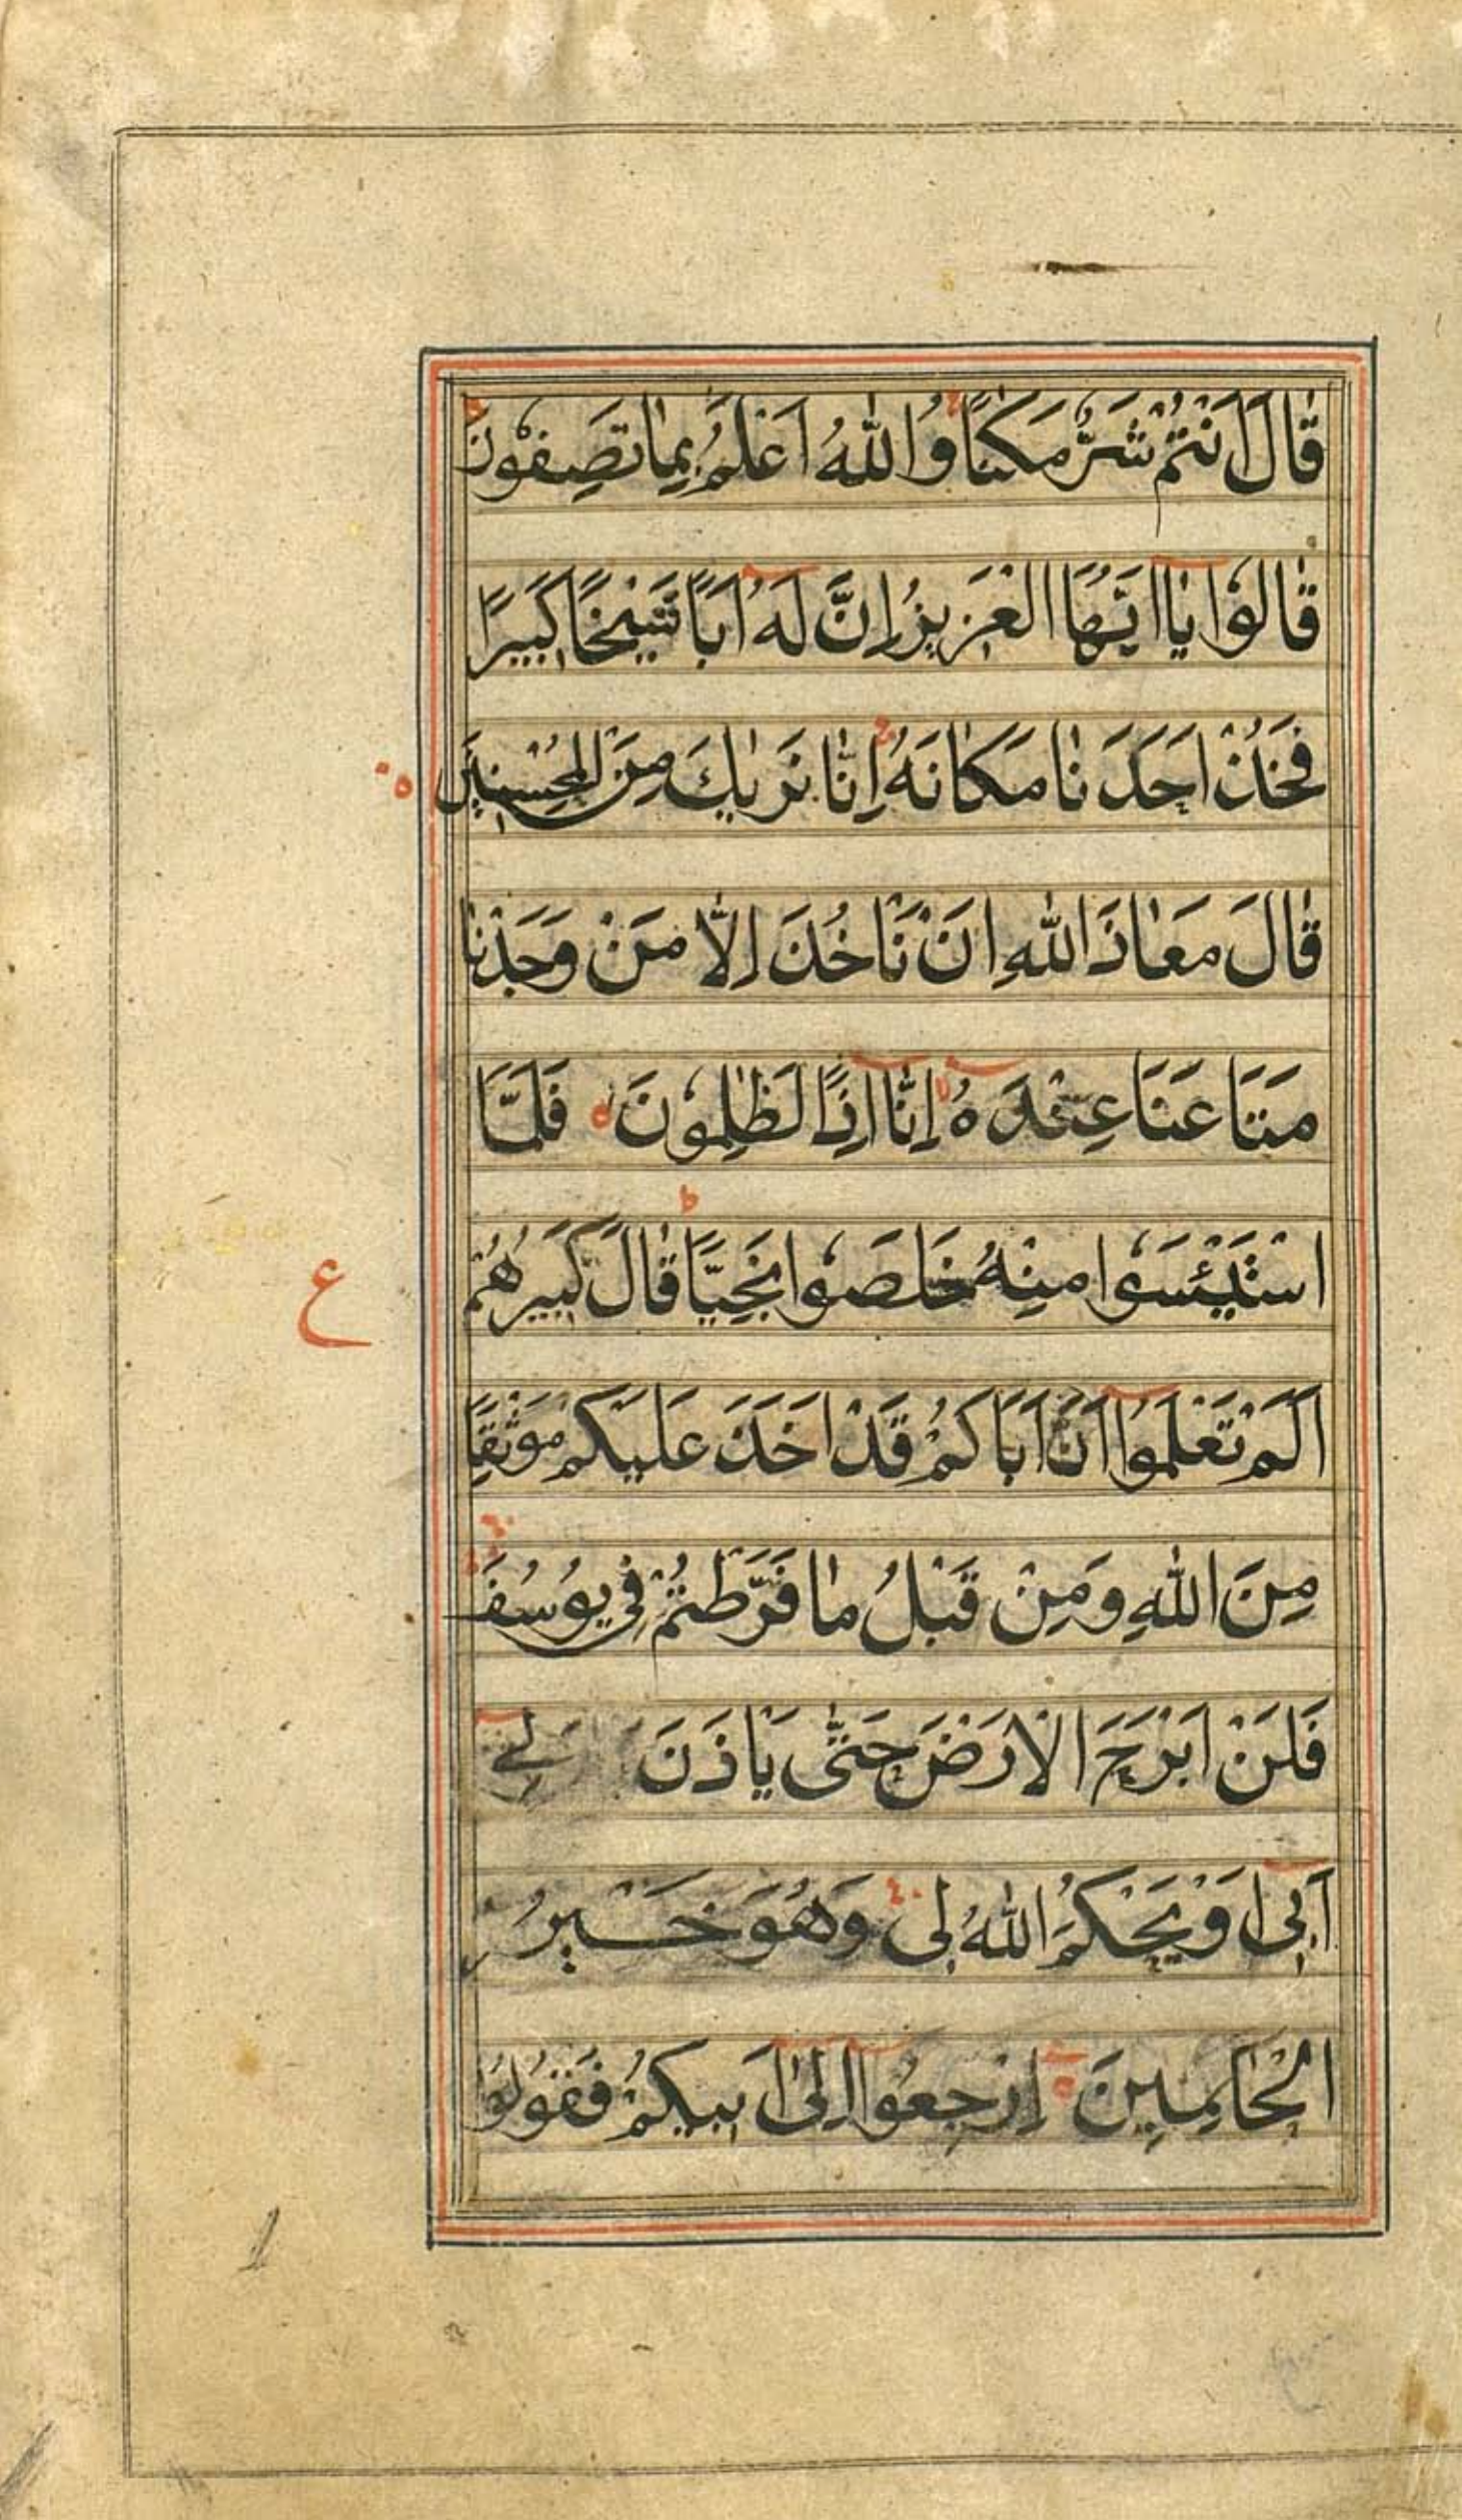 قَالَ اَنْتُمْ شَرٌّ مَكَانًا وَاللّٰهُ اَعْلَمُ بِمَا تَصِفُوْنَ
قَالُوْا يَا اَيُّهَا الْعَزِيزُ اِنَّ لَهُ اَبًا شَيْخًا كَبِيرًا
فَخُذْ اَحَدَنَا مَكَانَهُ اِنَّا نَرٰيكَ مِنَ الْمُحْسِنِينَ
قَالَ مَعَاذَ اللّٰهِ اَنْ نَأخُذَ اِلَّا مَنْ وَجَدْنَا
مَتَاعَنَا عِنْدَهُ اِنَّا اِذًا لَظٰلِمُوْنَ فَلَمَّا
اسْتَيْئَسُوْا مِنْهُ خَلَصُوْا نَجِيًّا قَالَ كَبِيرُهُمْ
اَلَمْ تَعْلَمُوا اَنَّ اَبَاكُمْ قَدْ اَخَذَ عَلَيْكُمْ مَوْثِقًا
مِنَ اللّٰهِ وَمِنْ قَبْلُ مَا فَرَّطْتُمْ فِي يُوسُفَ
فَلَنْ اَبْرَحَ الْاَرْضَ حَتّٰى يَاْذَنَ لِے
اَبِى اَوْ يَحْكُمَ اللّٰهُ لِى وَهُوَ خَيْرُ
الْحَاكِمِينَ اِرْجِعُوا اِلٰى اَبِيكُمْ فَقُولُوْا
ع